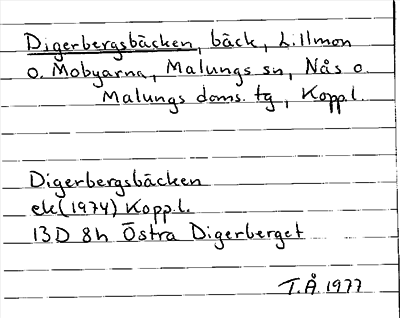 Digerbergsbäcken, bäck, Lillmon
o. Mobyarna, Malungs sn, Nås o.
Malungs doms. tg, Kopp.l.
Digerbergsbäcken
ek (1974) Kopp.l.
13D 8h Östra Digerberget
T.Å 1977